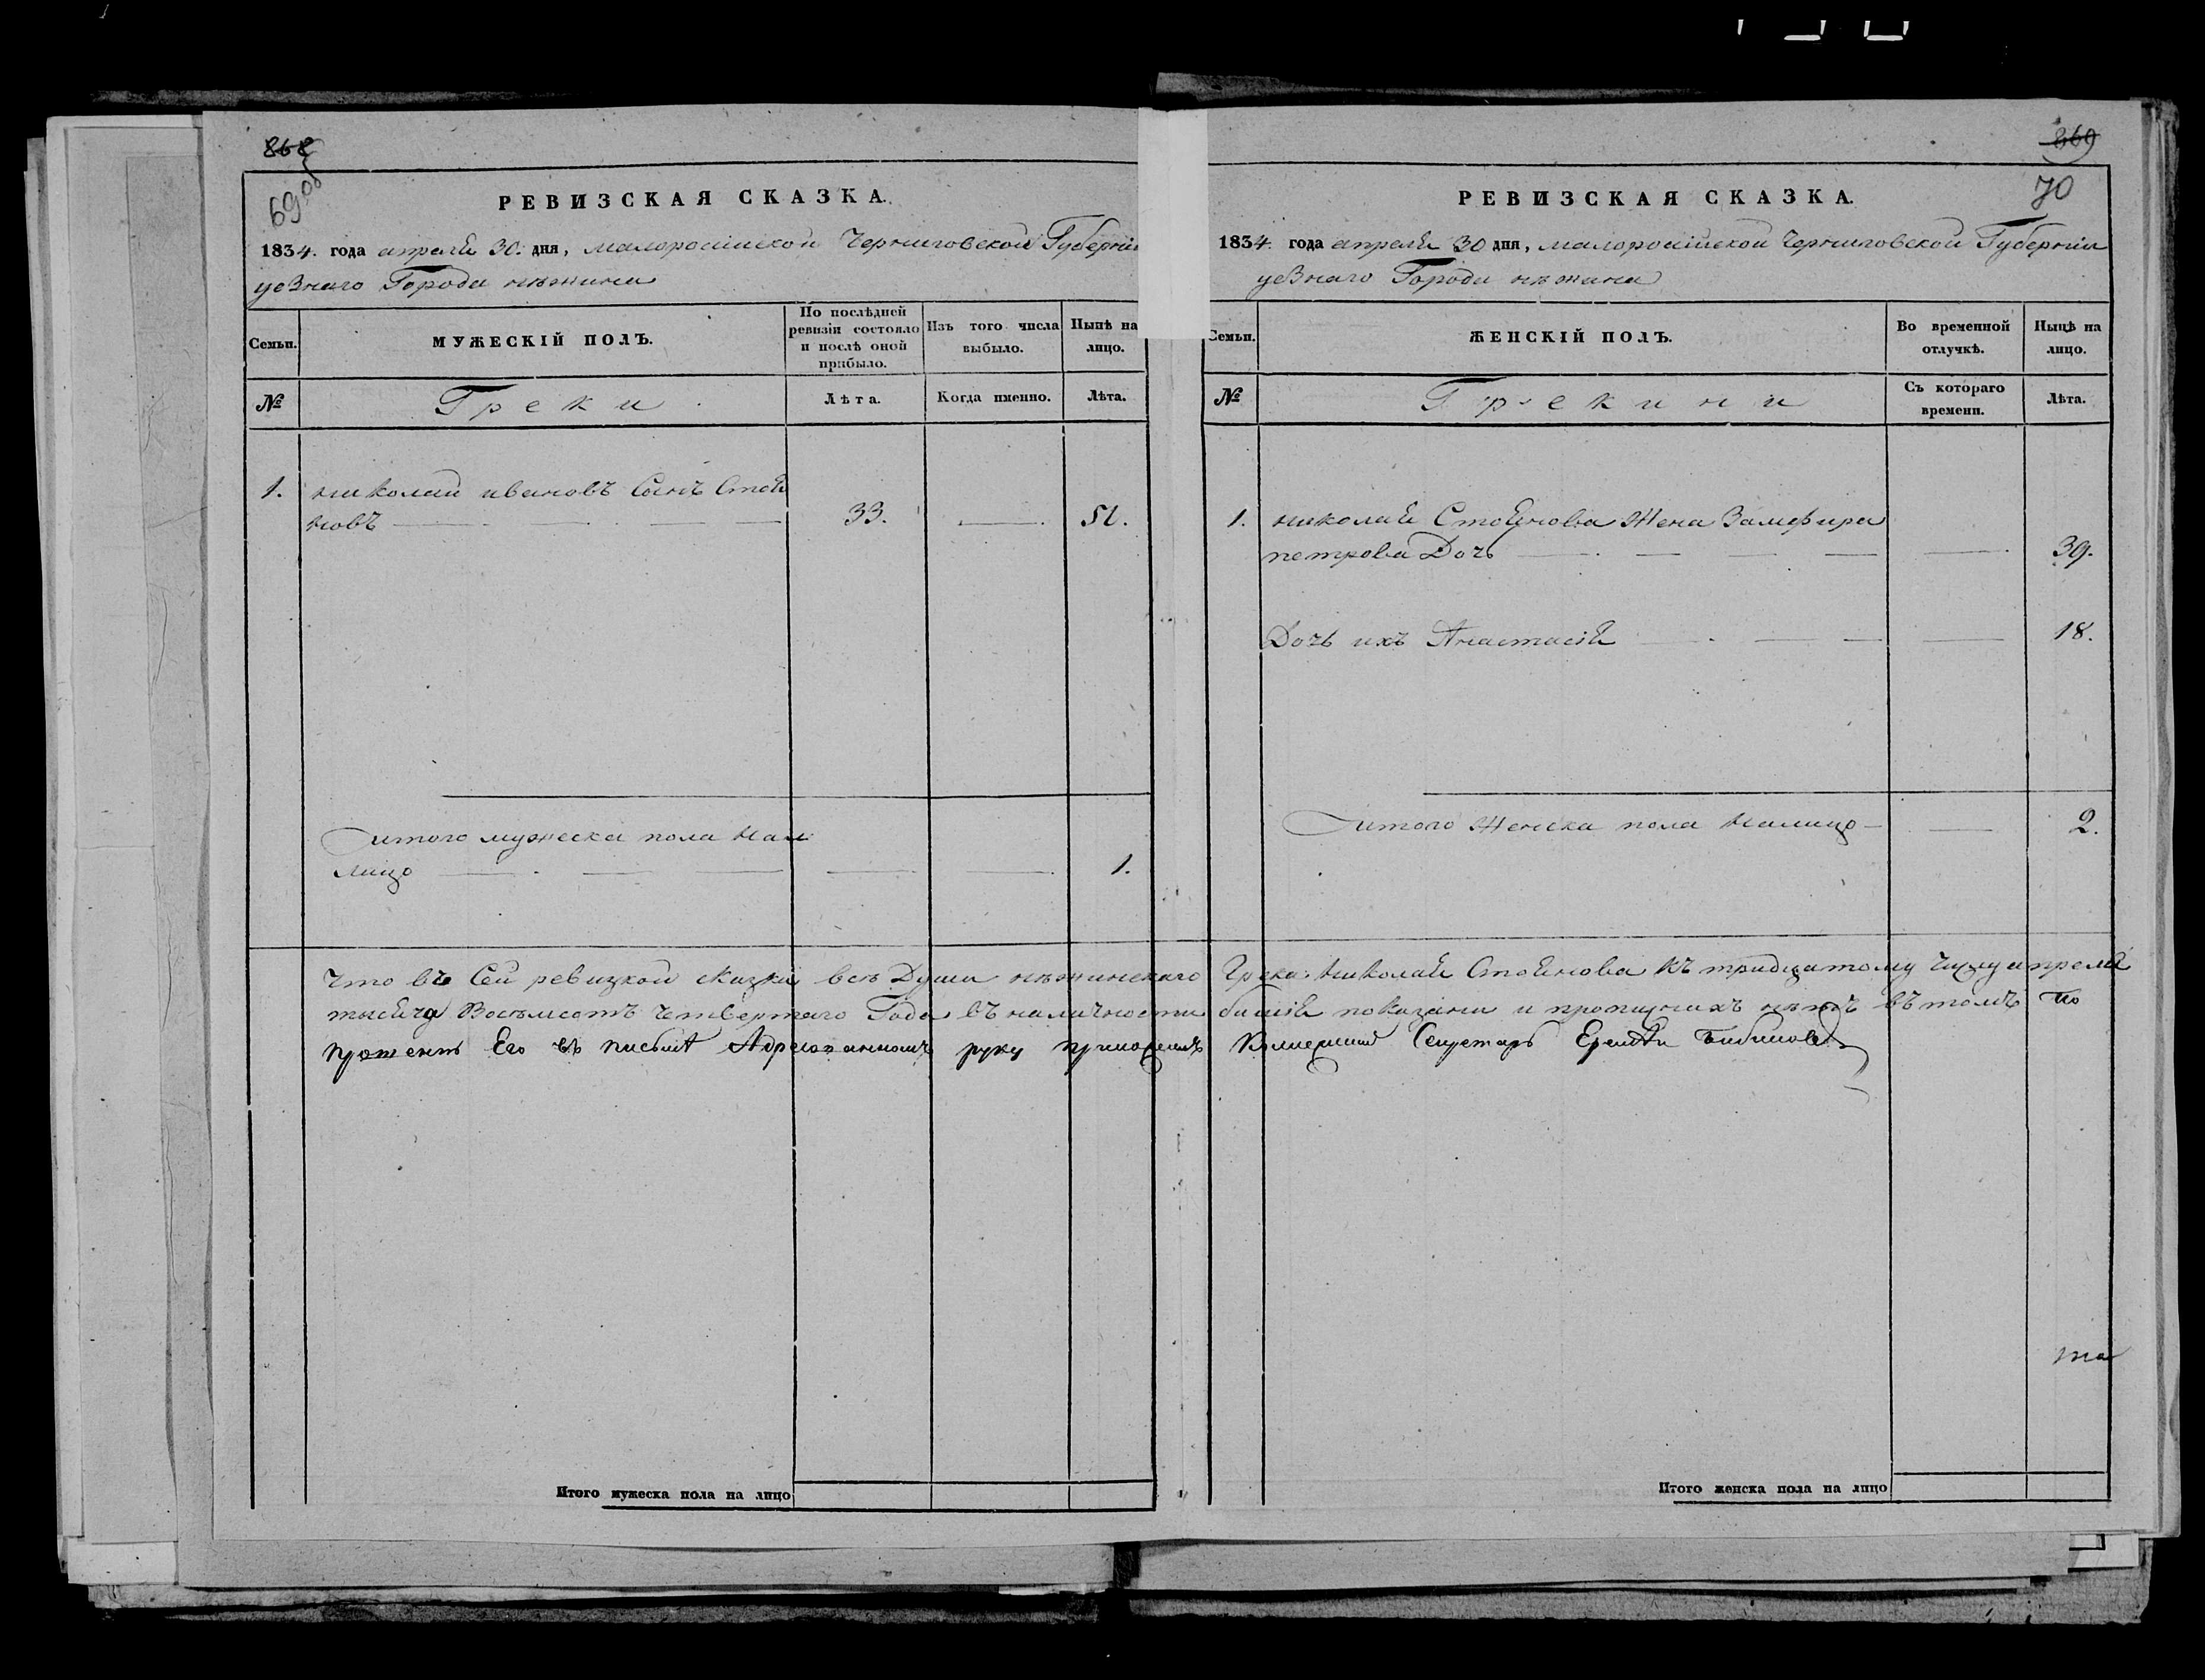 868
69 об
РЕВИЗСКАЯ СКАЗКА.
1834. года апреля 30. дня, малороссійской Черниговской Губерніи
уезнаго Города нѣжина
Семьи.
МУЖЕСКІЙ ПОЛЪ.
По послѣдней ревизіи состояло и послѣ оной прибыло.
Изъ того числа выбыло.
Нынѣ на лицо.
№
Греки.
Лѣта.
Когда именно.
Лѣта.
1. николай ивановъ Сынъ Стоя
новъ 33. 51.
итого мужеска пола На
лицо 1.
Итого мужеска пола на лицо
869
70
РЕВИЗСКАЯ СКАЗКА.
1834. года апреля 30 дня, малоросійской Черниговской Губерніи
уезнаго Города нѣжина
Семьи.
ЖЕНСКІЙ ПОЛЪ.
Во временной отлучкѣ.
Нынѣ на лицо.
№
Грекини
Съ котораго времени.
Лѣта.
1. николая Стоянова Жена Замфира
петрова Дочь 39.
Дочь ихъ Анастасія 18.
итого Женска пола Налицо 2.
Что въ Сей ревизкой сказки всѣ Души нѣжинскаго Грека Николая Стоянова Къ тридцатому Числу апреля
тысяча Восемсотъ Четвертаго Года въ наличности бшія показани и пропущихъ нѣтъ въ томъ По
прошению Его въ письмѣ руку приложилъ Секретарь
та
Итого женска пола на лицо